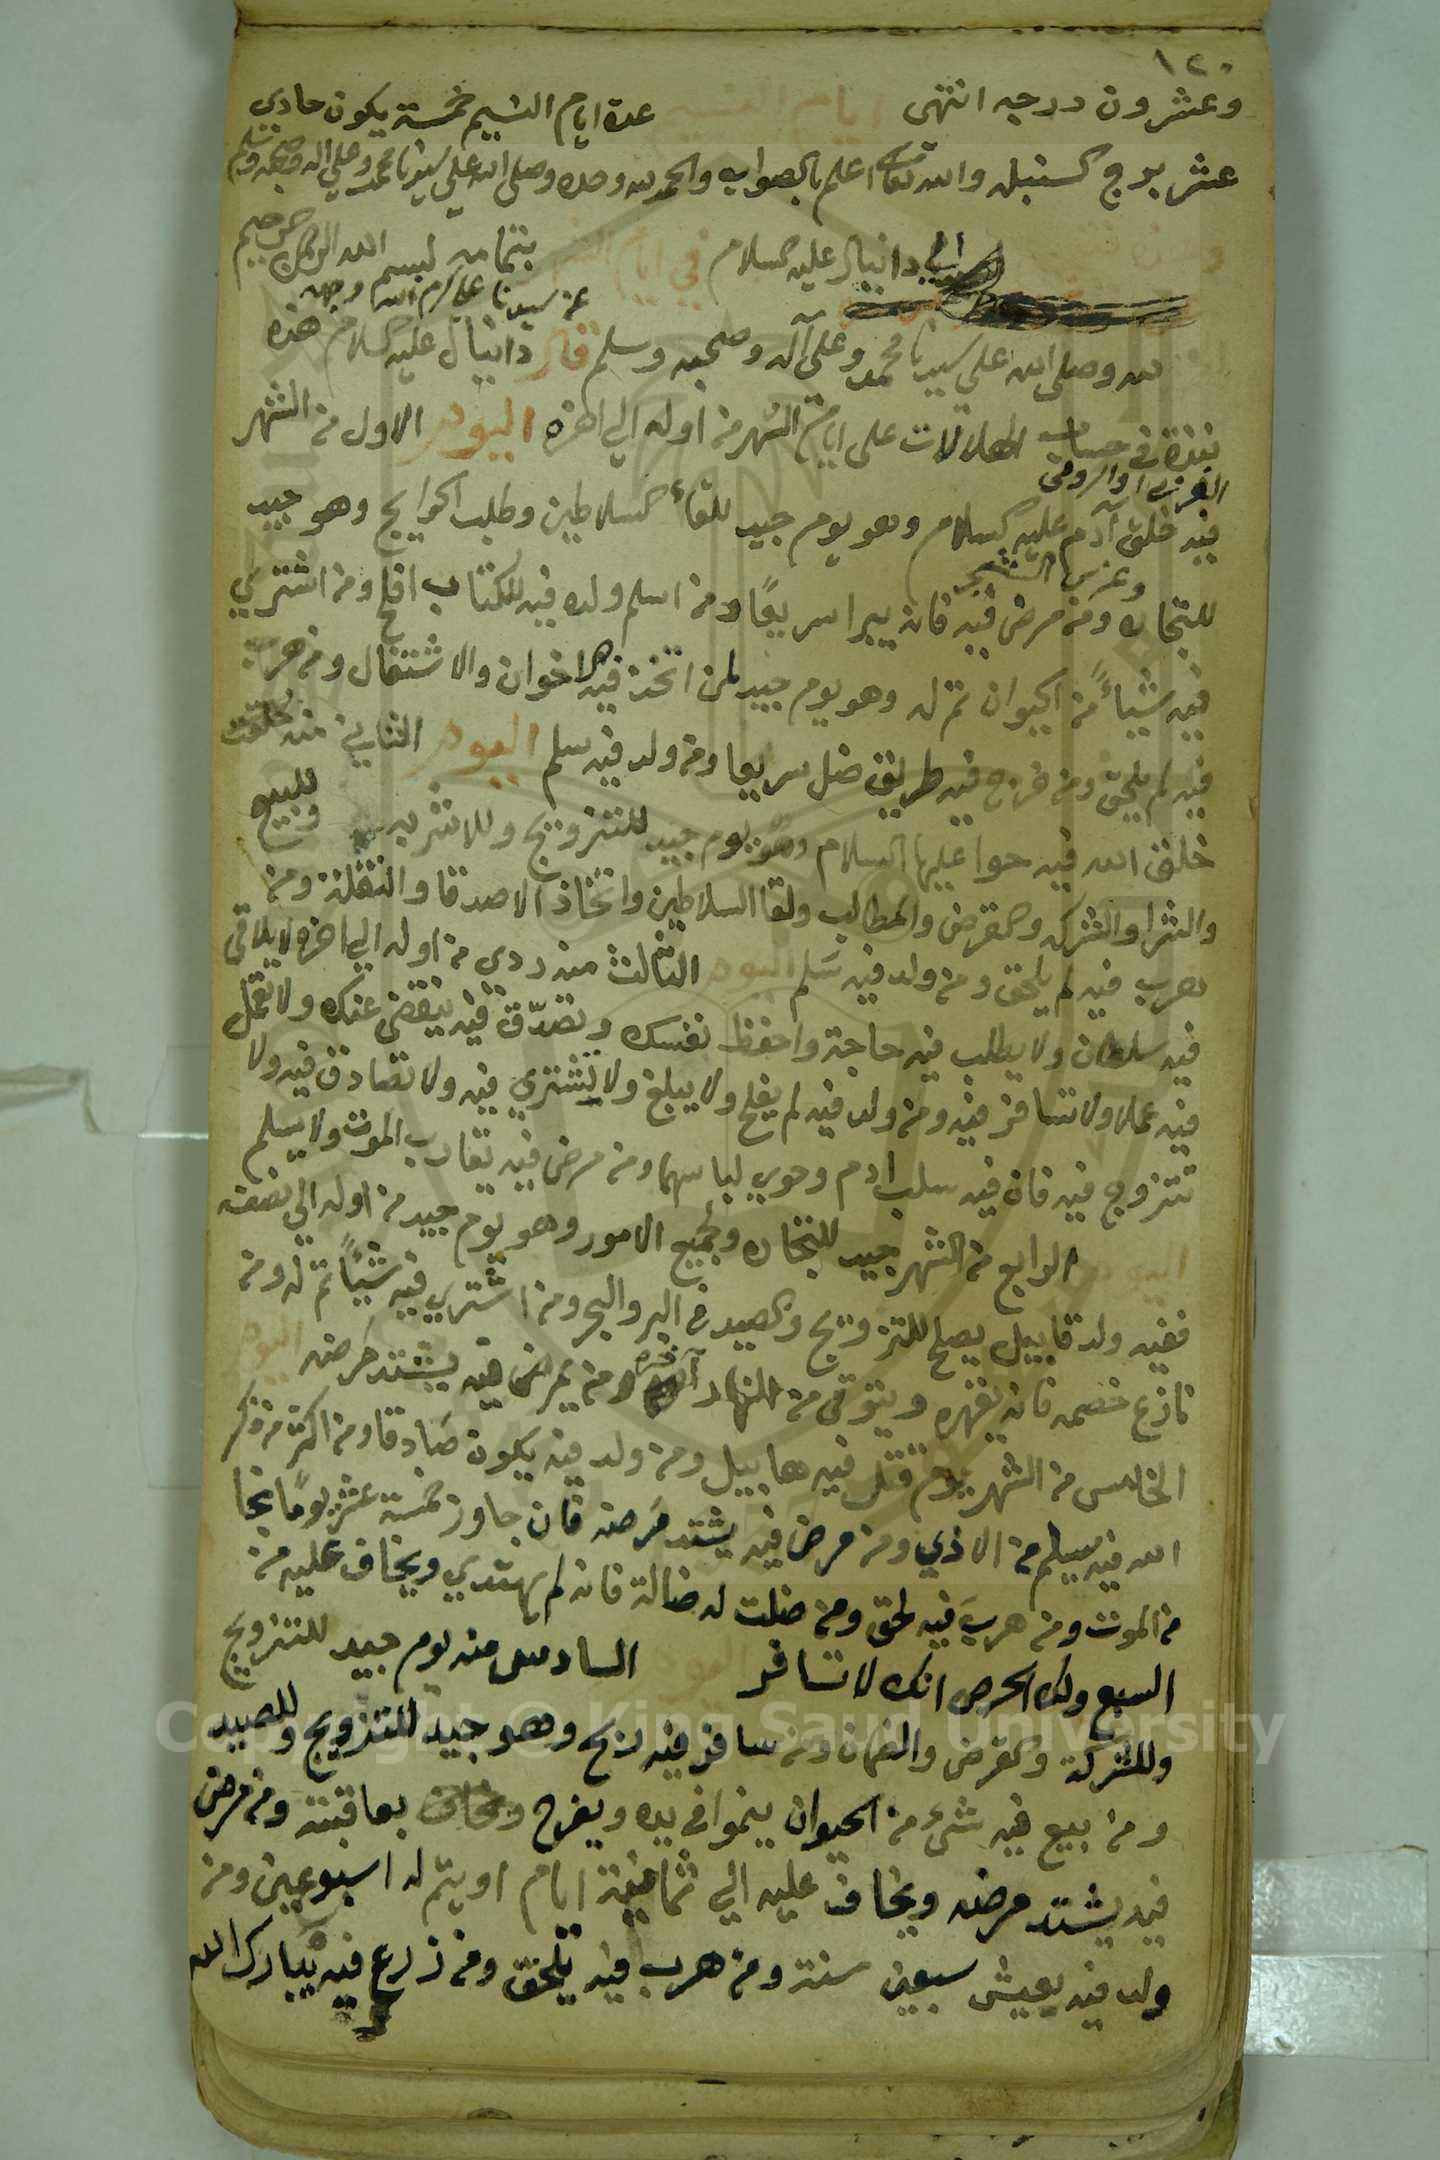 ١٢٠
وعشرون درجه انتهى ايام النسيم عدة ايام النسيم خمسة يكون حادى
عشر برج السنبله والله تعالى اعلم بالصواب والحمد لله وحده وصلى الله على سيدنا محمد وعلى اله وصحبه وسلم
الى دانيال عليه السلام في ايام بتمامه بسم الله الرحمن الرحيم
عن سيدنا علي كرم الله وجهه
لله وصلى الله على سيدنا محمد وعلى آله وصحبه وسلم قال دانيال عليه السلام هذه
نبذة في حساب الهلالات على ايام الشهر من اوله الي اخره اليوم الاول من الشهر
العربي او الرومي
فيه خلق آدم عليه السلام وهو يوم جيد للقاء السلاطين وطلب الحوايج وهو جيد
وغرس الشجر
للتجاره ومن مرض فيه فانه يبرا سريعًا ومن اسلم ولده فيه للكتاب افلح ومن اشترى
فيه شياءً من الحيوان تم له وهو يوم جيد لمن اتخذ فيه الاخوان والاشتغال ومن هرب
فيه لم يلحق ومن خرج فيه طريق ضل سريعا ومن ولد فيه سلم اليوم الثاني منه
خلق الله فيه حوا عليها السلام وهو يوم جيد للتزويج وللاشربه وللبيع
والشرا والشركه والقرض والمطالب ولقا السلاطين واتخاذ الاصدقا والنقلة ومن
هرب فيه لم يلحق ومن ولد فيه سَلم اليوم الثالث منه ردي من اوله الي اخره لا يلاقى
فيه سلطان ولا يطلب فيه حاجة واحفظ نفسك وتصدّق فيه ينقضى عنك ولا تعمل
فيه عملا ولا تسافر فيه ومن ولد فيه لم يفلح ولا يبلغ ولا يشتري فيه ولا تصادق فيه ولا
تتزوج فيه فان فيه سلب ادم وحوي لباسهما ومن مرض فيه يقارب الموت ولا يسلم
اليوم الرابع من الشهر جيد للتجاره ولجميع الامور وهو يوم جيد من اوله الي نصفه
ففيه ولد قابيل يصلح للتزويج والصيد في البر والبحر ومن اشتري فيه شيئًا تم له ومن
نازع خصمه فانه يقهره ويتوقى من النهار آخره ومن يمرض فيه يشتد مرضه اليوم
الخامس من الشهر يوم قتل فيه هابيل ومن ولد فيه يكون صَادقا ومن اكثر من ذكر
الله فيه يسلم من الاذي ومن مرض فيه يشتد مَرضه فان جاوز خمسة عشر يومًا نجا
من الموت ومن هربَ فيه لحق ومن ضلت له ضالة فانه لم يهتدي ويخاف عليه من
السبع ولك الحرص انك لا تسافر اليوم السادس منه يوم جيد للتزويج
وللشركة والقرض والضمان ومن سافر فيه ربح وهو جيد للتزويج وللصيد
ومن بيع فيه شئ من الحيوان ينموا في يده ويفرح بعاقبته ومن مرض
فيه يشتد مرضه ويخاف عليه الي ثمانية ايام او يتم له اسبوعين ومن
ولد فيه يعيش سبعين سنة ومن هرب فيه يلحق ومن زرع فيه يبارك الله
Copyright © King Saud University